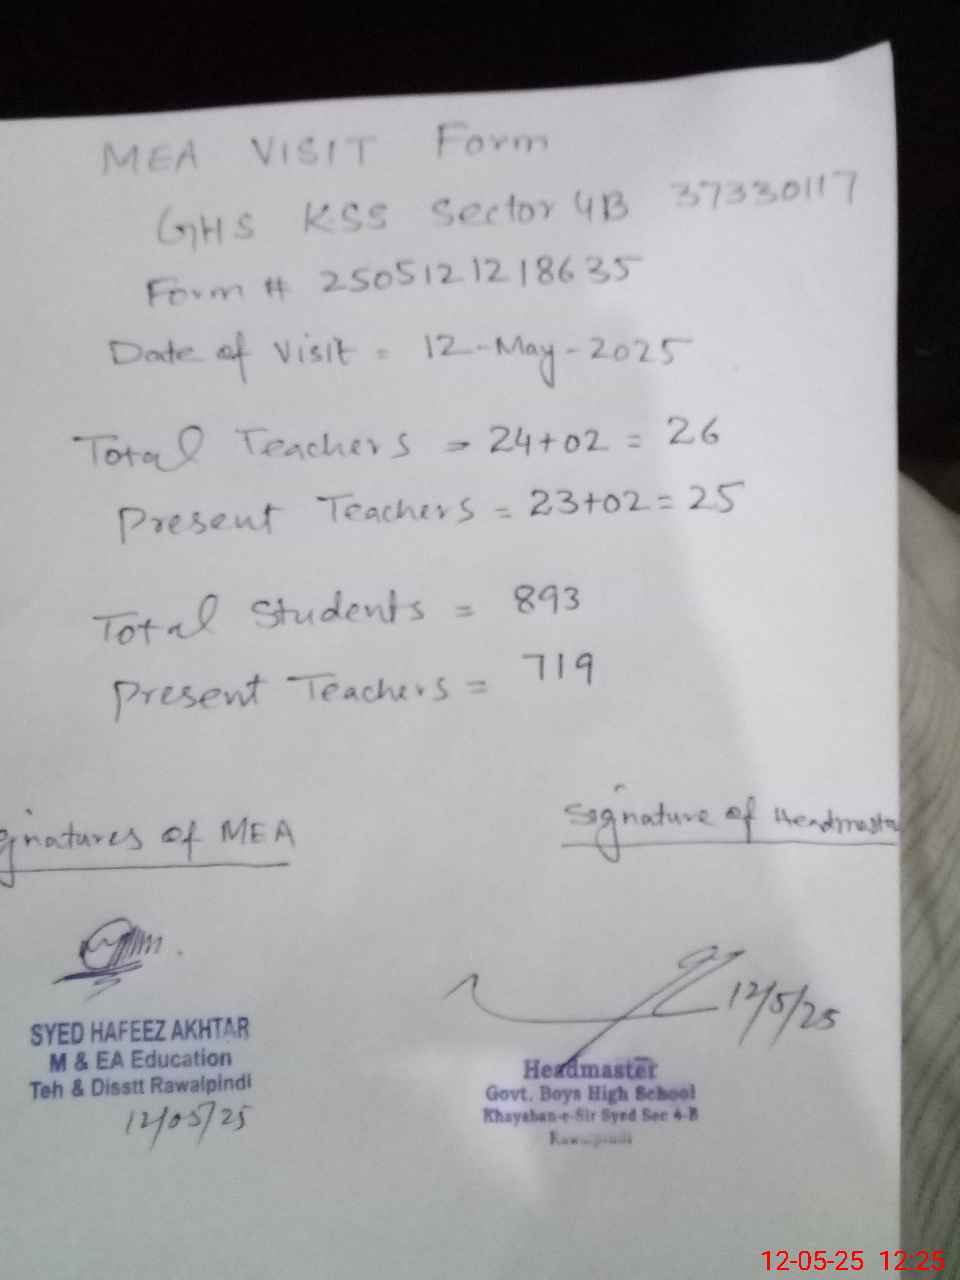 MEA VISIT Form
GHS KSS Sector 4B 37330117
Form # 2505121218635
Date of Visit = 12-May-2025
Total Teachers = 24+02 = 26
Present Teachers = 23+02 = 25
Total Students = 893
Present Teachers = 719
gnatures of MEA
Signature of Headmaste
SYED HAFEEZ AKHTAR
M & EA Education
Teh & Disstt Rawalpindi
12/05/25
12/5/25
Headmaster
Govt. Boys High School
Khayaban-e-Sir Syed Sec 4-B
Rawalpindi
12-05-25 12:25